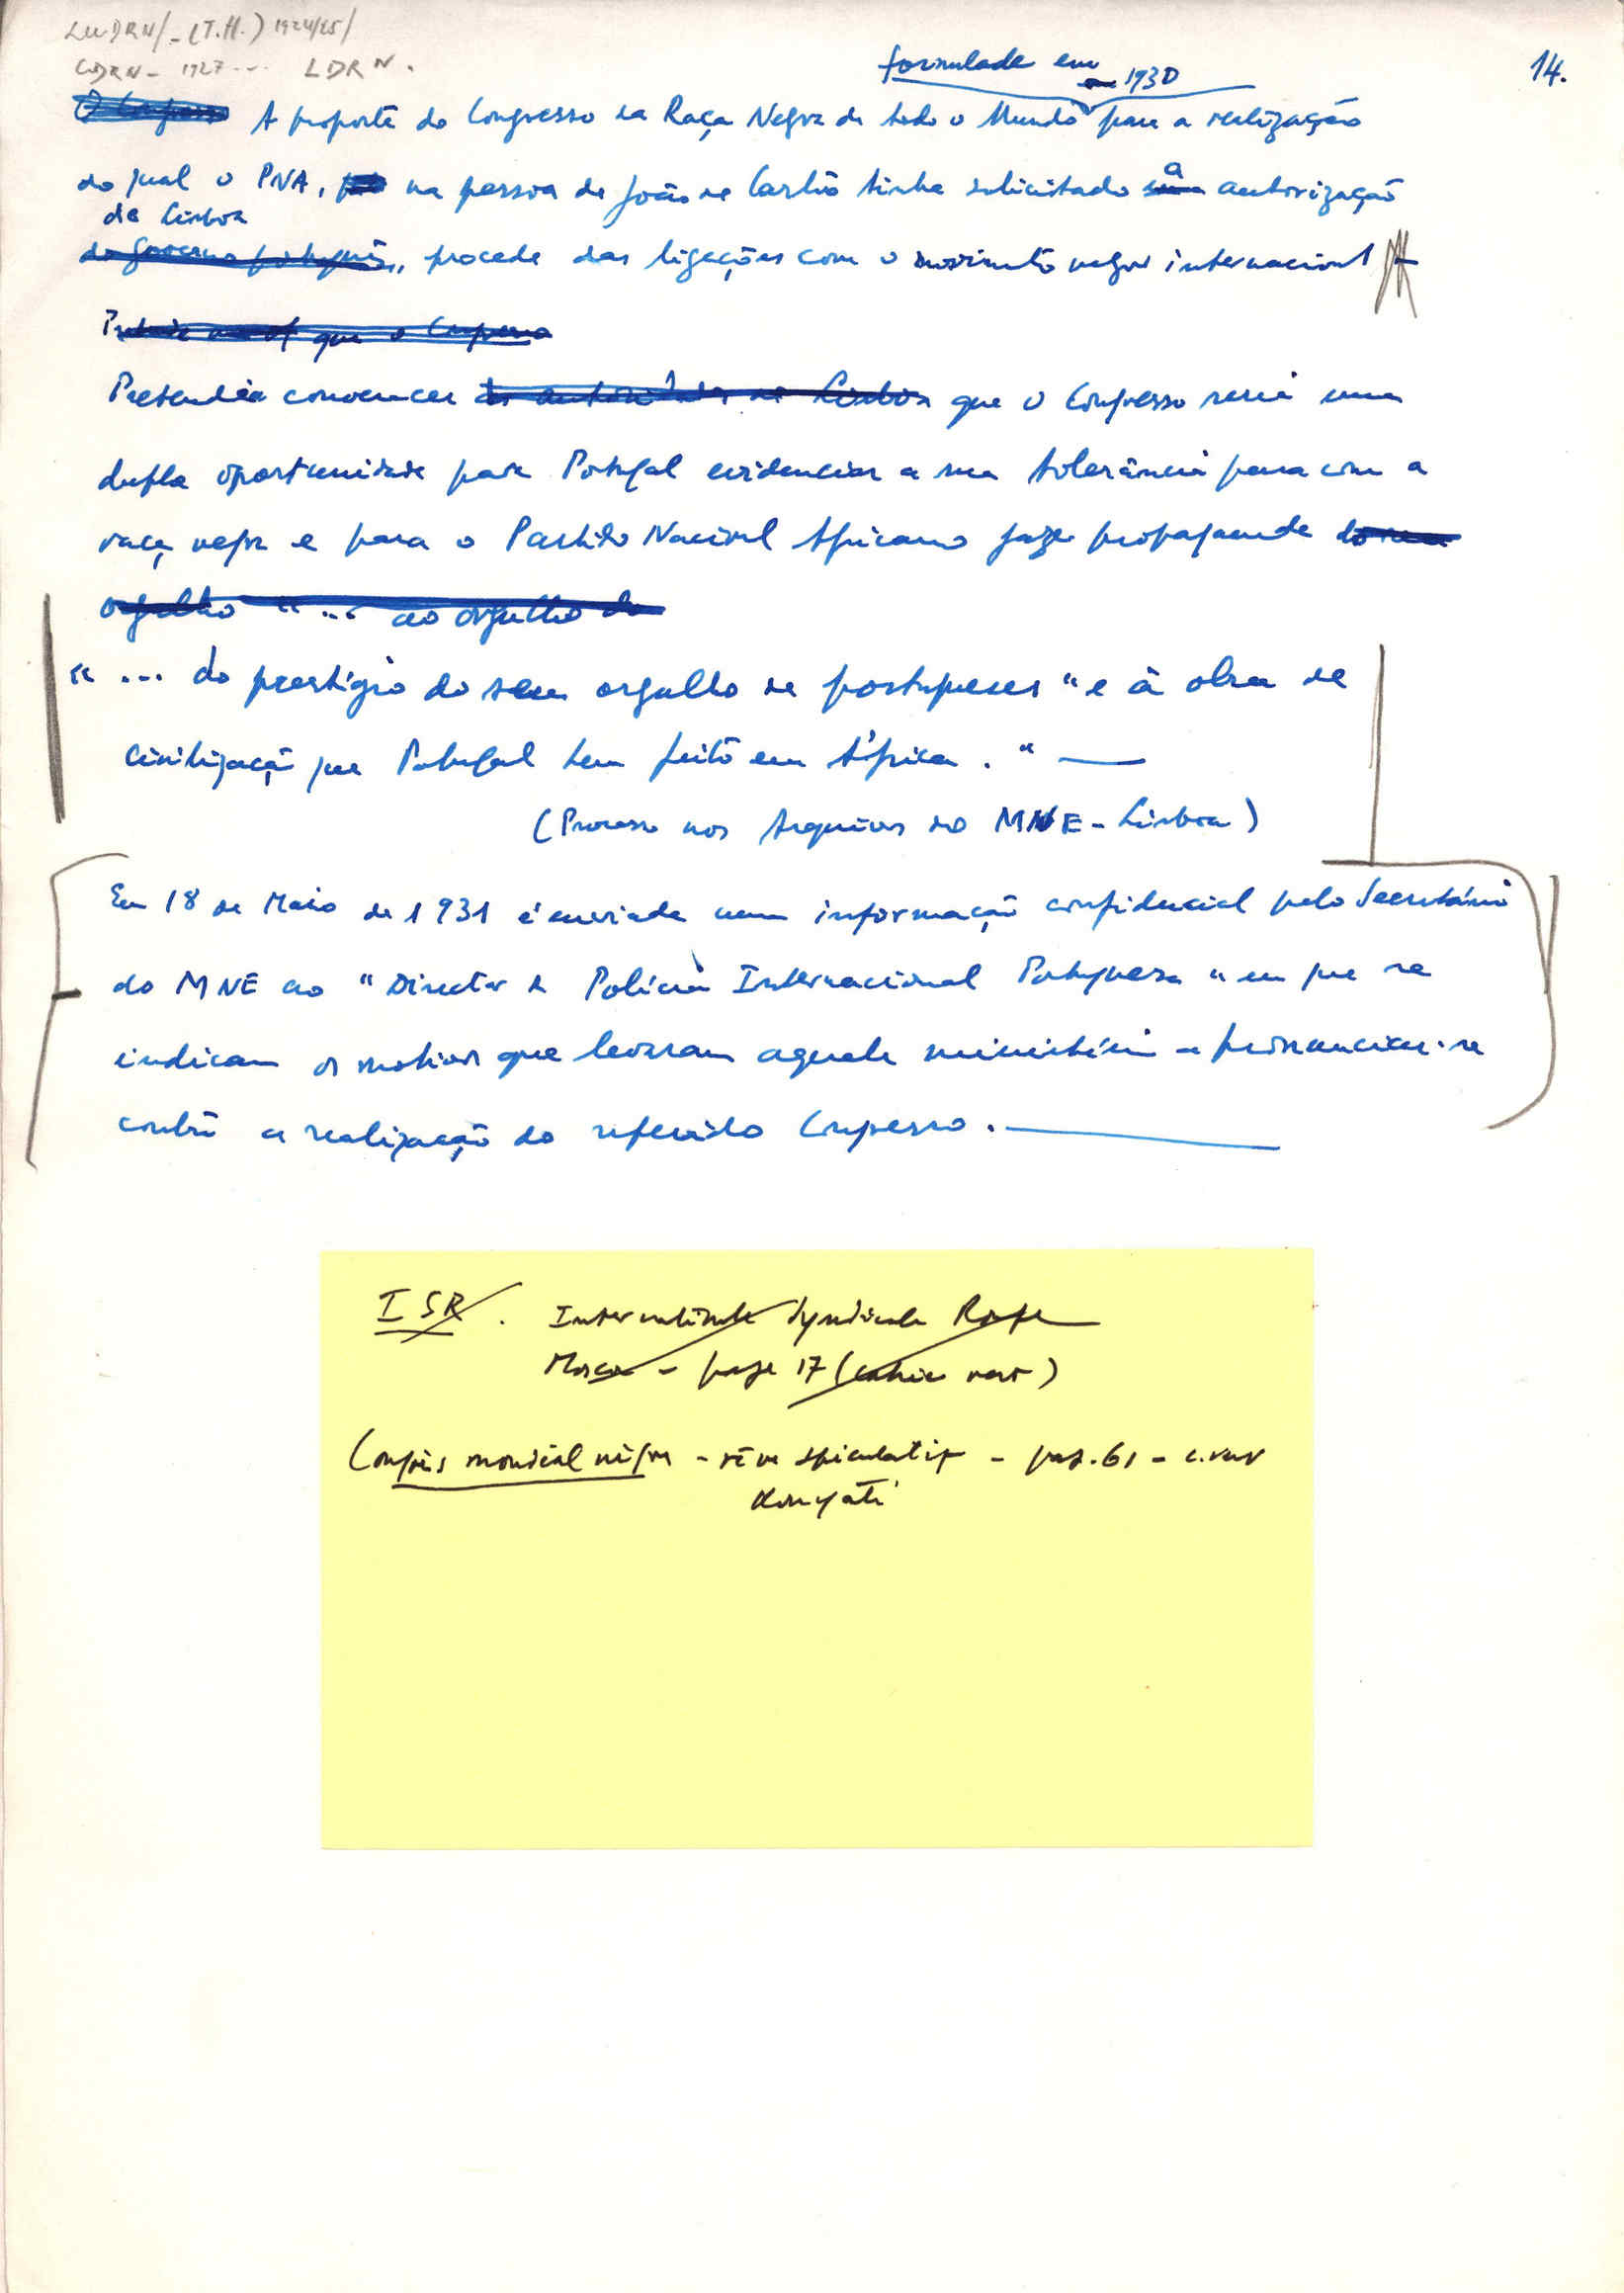 LUDRN/-(T.H.) 1924/25/
CDRN - 1927 --- LDRN.
14.
formulade em 1930
A proposta do Congresso da Raça Negra de todo o Mundo para a realização
do qual o PNA, na pessoa de João de Castro tinha solicitado a autorização
de Lisboa
do Governo português, procede das ligações com o movimento negro internacional
que o Congresso
Pretendia convencer as autoridades de Lisboa que o Congresso seria uma
dupla oportunidade para Portugal evidenciar a sua tolerância para com a
raça negra e para o Partido Nacional Africano fazer propaganda do seu
orgulho "... ao orgulho do
"... do prestígio do seu orgulho de portugueses" e à obra de
civilização que Portugal tem feito em África." —
(Processo nos Arquivos do MNE - Lisboa)
Em 18 de Maio de 1931 é enviada uma informação confidencial pelo Secretário
do MNE ao "Director da Polícia Internacional Portuguesa" em que se
indicam os motivos que levaram aquele ministério a pronunciar-se
contra a realização do referido Congresso.
ISR. Internationale Syndicale Rouge
Moscou - page 17 (cahier vert)
Congrès mondial nègre - rêve spéculatif - pag. 61 - c. vert
Kouyaté